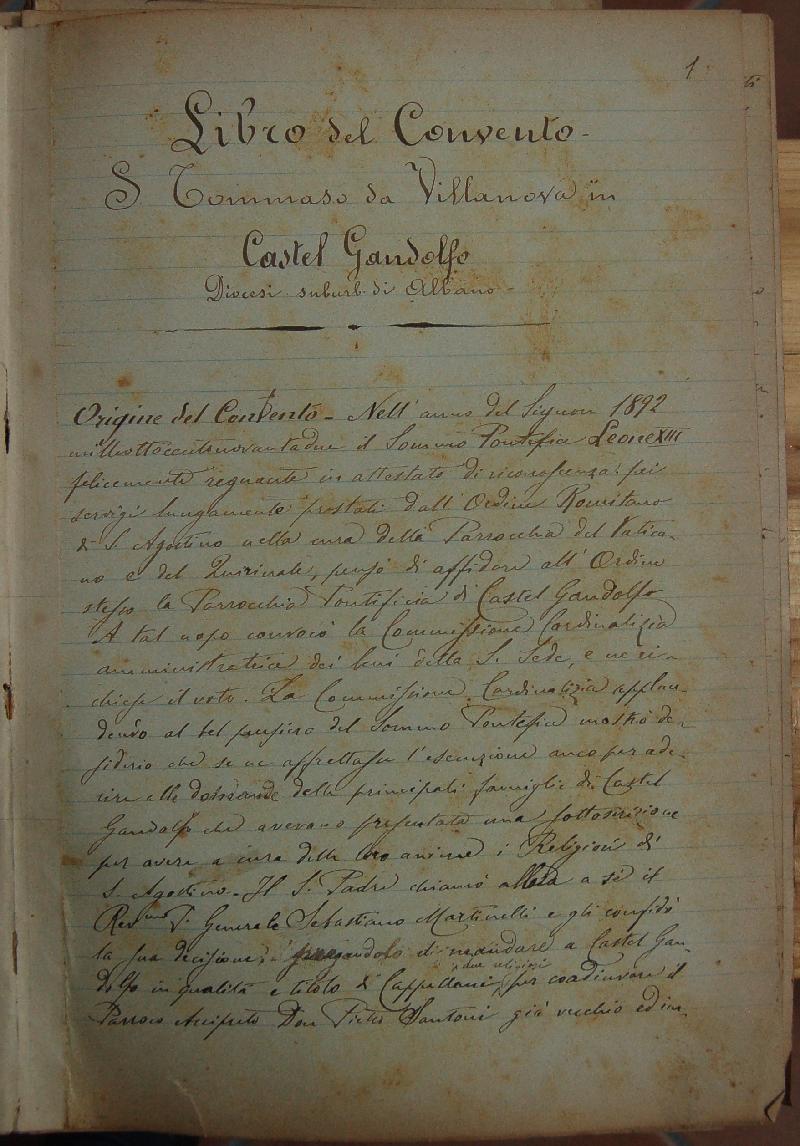 1
Libro del Convento -
S Tommaso da Villanova in
Castel Gandolfo
Diocesi suburb. di Albano -
Origine del Convento - Nell' anno del Signore 1892
milleottocentonovantadue il Sommo Pontefice Leone XIII
felicemente regnante in attestato di riconoscenza pei
servigi lungamente prestati dall' Ordine Romitano
di S. Agostino nella cura della Parrocchia del Vatica-
no e del Quirinale, pensò di affidare all' Ordine
stesso la Parrocchia Pontificia di Castel Gandolfo
A tal uopo convocò la Commissione Cardinalizia
amministratrice dei beni della S. Sede, e ne ri-
chiese il voto. La Commissione Cardinalizia applau-
dendo al bel pensiero del Sommo Pontefice mostrò de-
siderio che se ne affrettasse l'esecuzione anco per ade-
rire alle domande delle principali famiglie di Castel
Gandolfo che avevano presentata una sottoscrizione
per avere a cura delle loro anime i Religiosi di
S. Agostino. Il S. Padre chiamò allora a sè il
Rev.mo P. Generale Sebastiano Martinelli e gli confidò
la sua decisione, pregandolo di mandare a Castel Gan-
dolfo in qualità e titolo di Cappellani due religiosi per coadiuvare il
Parroco Arciprete Don Pietro Santoni già vecchio ed im-